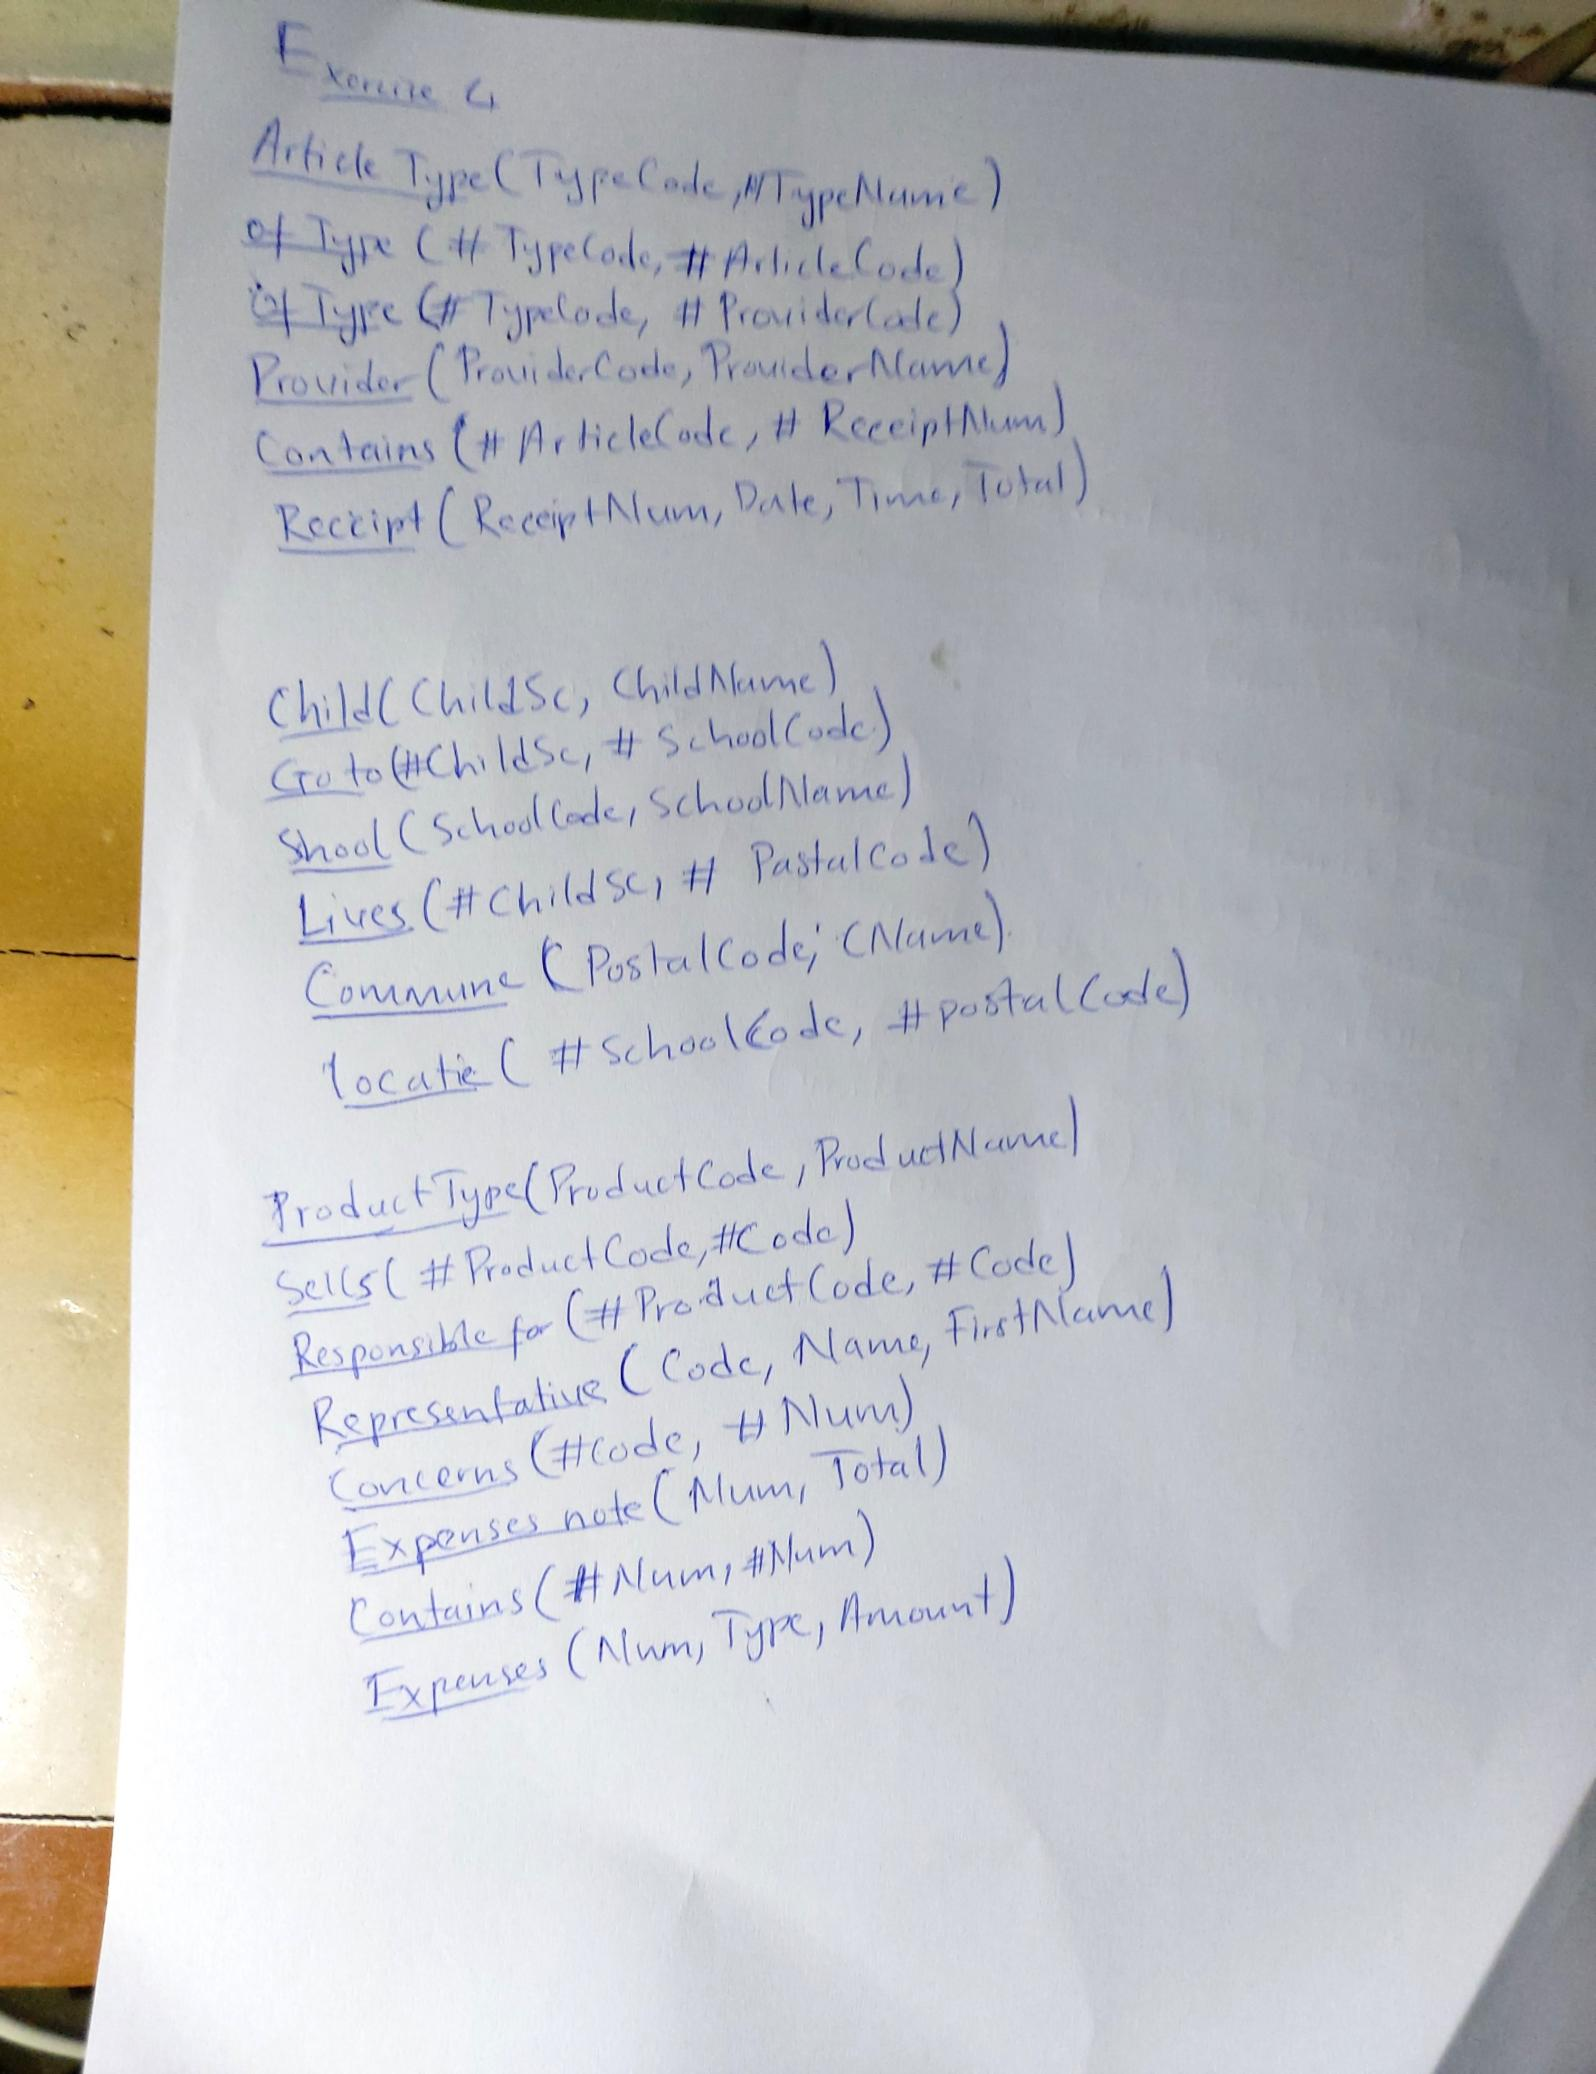 Exercise 4
Article Type (TypeCode, #TypeName)
of Type (# TypeCode, # ArticleCode)
of Type (# TypeCode, # ProviderCode)
Provider (ProviderCode, ProviderName)
Contains (# ArticleCode, # ReceiptNum)
Receipt (ReceiptNum, Date, Time, Total)
Child (ChildSc, ChildName)
Go to (#ChildSc, # SchoolCode)
Shool (SchoolCode, SchoolName)
Lives (#ChildSc, # PastalCode)
Commune (PostalCode, CName)
locatie ( # SchoolCode, #postalCode)
Product Type (ProductCode, ProductName)
Sells ( # ProductCode, #Code)
Responsible for (# ProductCode, # Code)
Representative (Code, Name, FirstName)
Concerns (#Code, # Num)
Expenses note (Num, Total)
Contains (# Num, #Num)
Expenses (Num, Type, Amount)